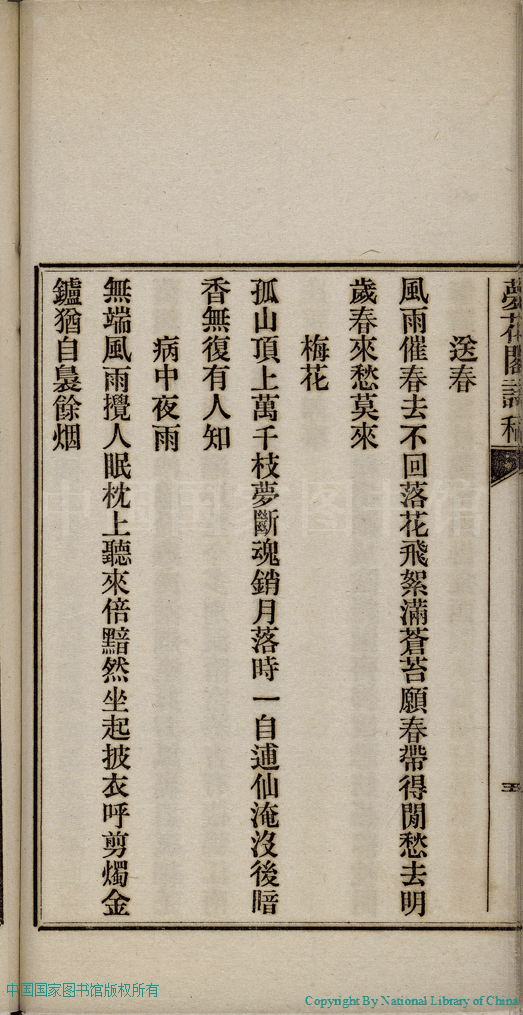 夢花閣詩稿
五
送春
風雨催春去不回落花飛絮滿蒼苔願春帶得閒愁去明
歲春來愁莫來
梅花
孤山頂上萬千枝夢斷魂銷月落時一自逋仙淹沒後暗
香無復有人知
病中夜雨
無端風雨攪人眠枕上聽來倍黯然坐起披衣呼剪燭金
鑪猶自裊餘烟
中国国家图书馆版权所有
Copyright By National Library of China